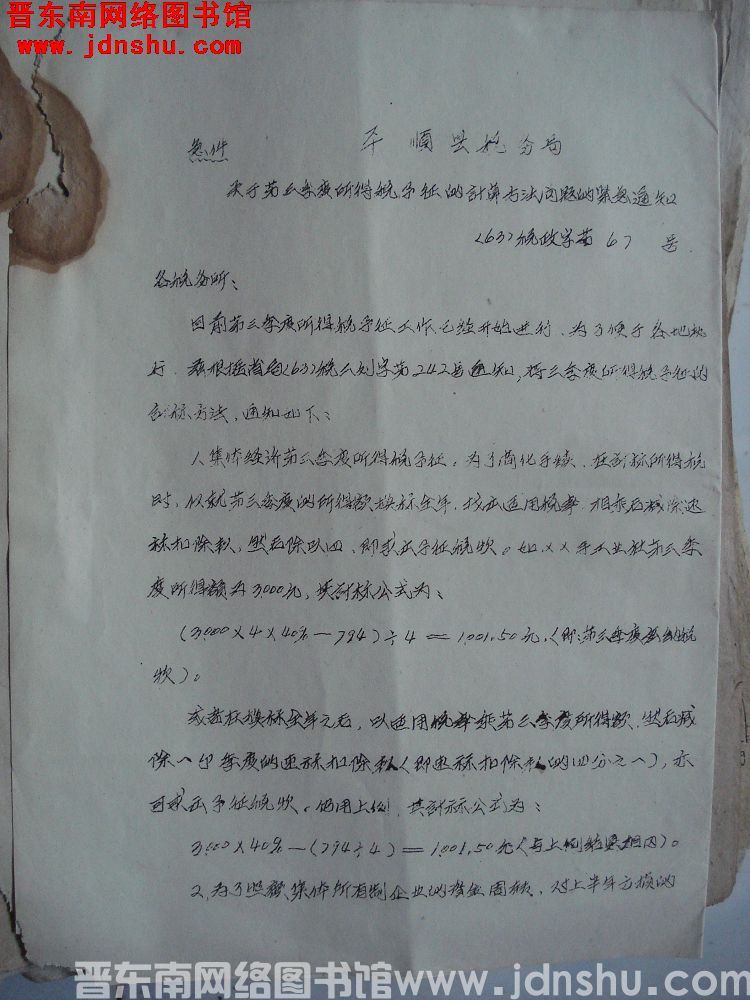 晋东南网络图书馆
www.jdnshu.com
急件 平順县税务局
关于第三季度所得税予征的计算方法问题的紧急通知
〈63〉税政字第 67 号
各税务所：
目前第三季度所得税予征工作已经开始进行，为了便于各地执
行，兹根据省局〈63〉税二刘字第242号通知，将三季度所得税予征的
计标方法，通知如下：
1.集体经济第三季度所得税予征，为了简化手续，在计标所得税
时，仅就第三季度的所得额换标全年，找出适用税率，相乘后减除速
标扣除数，然后除以四，即求出予征税款。如××手工业社第三季
度所得额为3000元，其计标公式为：
(3,000×4×40%－794)÷4＝1,001.50元，（即：第三季度应纳税
款）。
或者在换标全年之后，以适用税率乘第三季度所得额，然后减
除一个季度的速标扣除数（即速标扣除数的四分之一），亦
可求出予征税款。仍用上例，其计标公式为：
3,000×40%－(794÷4)＝1,001.50元（与上例结果相同）。
2.为了照顾集体所有制企业的资金周转，对上半年亏损的
晋东南网络图书馆www.jdnshu.com